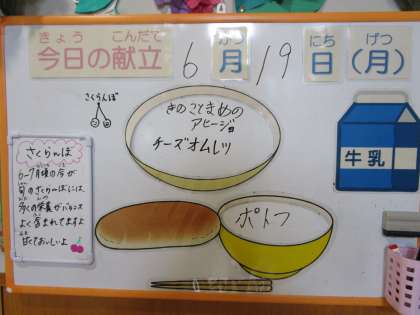 きょう こんだて
今日の献立
6 月 19 日 (月)
がつ にち げつ
さくらんぼ
きのことまめの
アヒージョ
チーズオムレツ
牛乳
ポトフ
さくらんぼ
6〜7月頃の今が
旬のさくらんぼには、
多くの栄養がバランス
よく含まれてますよ
甘くておいしいよ